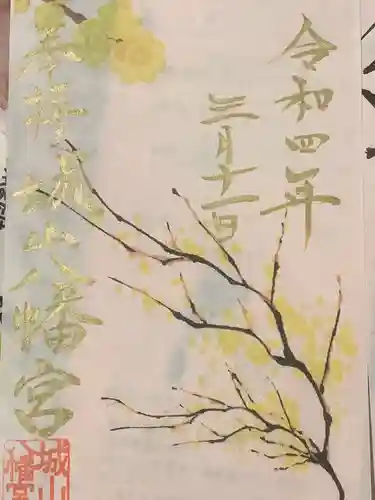 令和四年
三月十一日
奉拝 城山八幡宮
城山
八幡宮